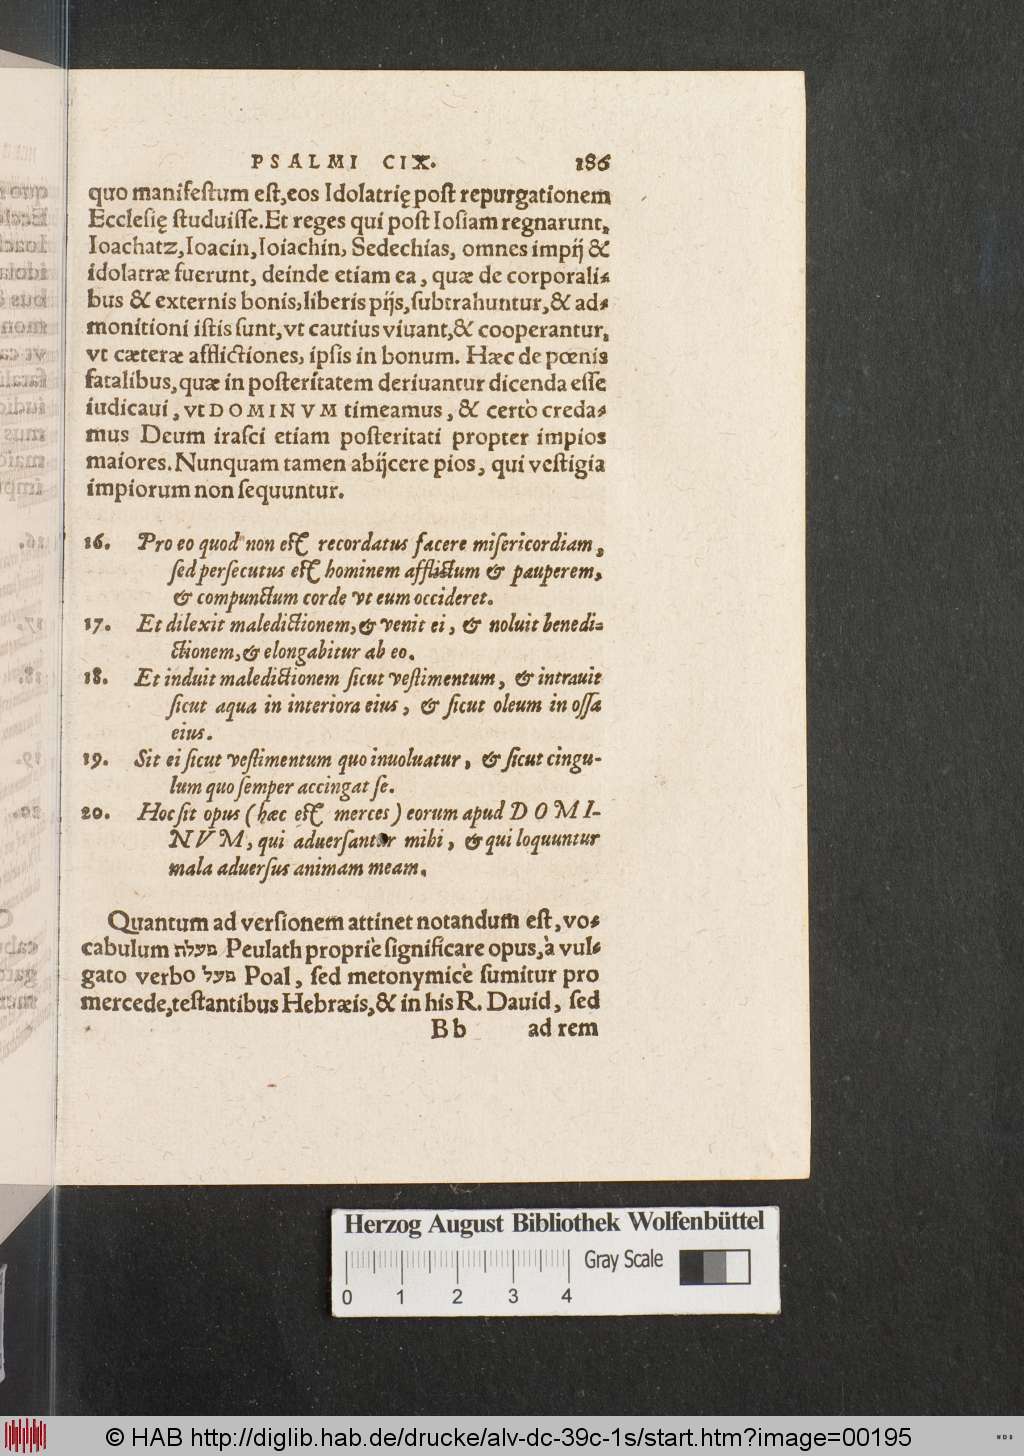 PSALMI CIX. 186
quo manifeſtum eſt,eos Idolatrię poſt repurgationem
Eccleſię ſtuduiſſe.Et reges qui poſt Ioſiam regnarunt,
Ioachatz,Ioacin,Ioiachin, Sedechias, omnes impij &
idolatræ fuerunt, deinde etiam ea, quæ de corporali⸗
bus & externis bonis,liberis pijs,ſubtrahuntur,& ad⸗
monitioni iſtis ſunt,vt cautius viuant,& cooperantur,
vt cæteræ afflictiones, ipſis in bonum. Hæc de pœnis
fatalibus,quæ in poſteritatem deriuantur dicenda eſſe
iudicaui, vt DOMINVM timeamus, & certò creda⸗
mus Deum iraſci etiam poſteritati propter impios
maiores. Nunquam tamen abijcere pios, qui veſtigia
impiorum non ſequuntur.
16. Pro eo quod non eſt recordatus facere miſericordiam,
ſed perſecutus eſt hominem afflictum & pauperem,
& compunctum corde vt eum occideret.
17. Et dilexit maledictionem,& venit ei, & noluit benedi⸗
ctionem,& elongabitur ab eo.
18. Et induit maledictionem ſicut veſtimentum, & intrauit
ſicut aqua in interiora eius, & ſicut oleum in oſſa
eius.
19. Sit ei ſicut veſtimentum quo inuoluatur, & ſicut cingu-
lum quo ſemper accingat ſe.
20. Hoc ſit opus (hæc eſt merces) eorum apud DOMI-
NVM, qui aduerſantur mihi, & qui loquuntur
mala aduerſus animam meam.
Quantum ad verſionem attinet notandum eſt, vo⸗
cabulum פעלת Peulath propriè ſignificare opus,à vul⸗
gato verbo פעל Poal, ſed metonymicè ſumitur pro
mercede,teſtantibus Hebræis,& in his R. Dauid, ſed
Bb ad rem
Herzog August Bibliothek Wolfenbüttel
Gray Scale
0 1 2 3 4
© HAB http://diglib.hab.de/drucke/alv-dc-39c-1s/start.htm?image=00195